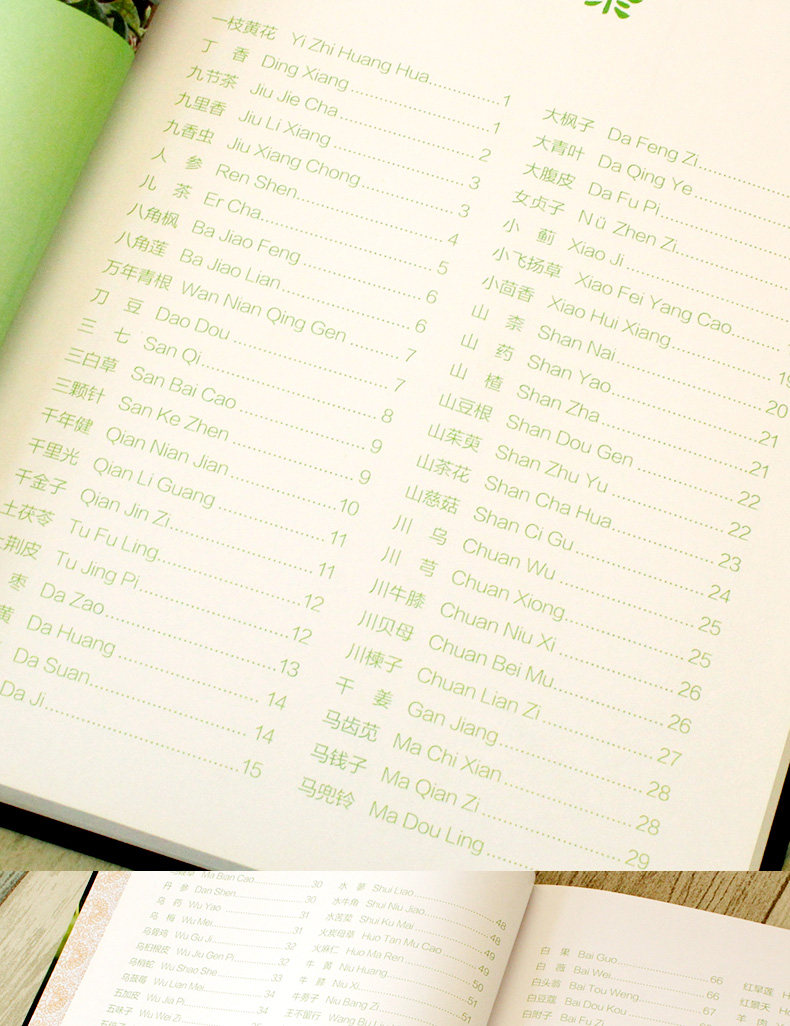 一枝黄花 Yi Zhi Huang Hua 1
丁 香 Ding Xiang 1
九节茶 Jiu Jie Cha 2
九里香 Jiu Li Xiang 3
九香虫 Jiu Xiang Chong 3
人 参 Ren Shen 4
儿 茶 Er Cha 5
八角枫 Ba Jiao Feng 6
八角莲 Ba Jiao Lian 6
万年青根 Wan Nian Qing Gen 7
刀 豆 Dao Dou 7
三 七 San Qi 8
三白草 San Bai Cao 9
三颗针 San Ke Zhen 9
千年健 Qian Nian Jian 10
千里光 Qian Li Guang 11
千金子 Qian Jin Zi 11
土茯苓 Tu Fu Ling 12
荆皮 Tu Jing Pi 12
枣 Da Zao 13
黄 Da Huang 14
Da Suan 14
Da Ji 15
大枫子 Da Feng Zi
大青叶 Da Qing Ye
大腹皮 Da Fu Pi
女贞子 Nü Zhen Zi
小 蓟 Xiao Ji
小飞扬草 Xiao Fei Yang Cao
小茴香 Xiao Hui Xiang 19
山 柰 Shan Nai 20
山 药 Shan Yao 21
山 楂 Shan Zha 21
山豆根 Shan Dou Gen 22
山茱萸 Shan Zhu Yu 22
山茶花 Shan Cha Hua 23
山慈菇 Shan Ci Gu 24
川 乌 Chuan Wu 25
川 芎 Chuan Xiong 25
川牛膝 Chuan Niu Xi 26
川贝母 Chuan Bei Mu 26
川楝子 Chuan Lian Zi 27
干 姜 Gan Jiang 28
马齿苋 Ma Chi Xian 28
马钱子 Ma Qian Zi 29
马兜铃 Ma Dou Ling
Ma Bian Cao 30
丹 参 Dan Shen 30
乌 药 Wu Yao 31
乌 梅 Wu Mei 31
乌骨鸡 Wu Gu Ji 32
乌桕根皮 Wu Jiu Gen Pi 32
乌梢蛇 Wu Shao She 33
乌蔹莓 Wu Lian Mei 34
五加皮 Wu Jia Pi 34
五味子 Wu Wei Zi
水 蓼 Shui Liao 48
水牛角 Shui Niu Jiao 48
水苦荬 Shui Ku Mai 49
火炭母草 Huo Tan Mu Cao 49
火麻仁 Huo Ma Ren 50
牛 黄 Niu Huang 51
牛 膝 Niu Xi 51
牛蒡子 Niu Bang Zi
王不留行 Wang Bu Liu
白 果 Bai Guo 66
白 薇 Bai Wei 66
白头翁 Bai Tou Weng 67
白豆蔻 Bai Dou Kou
白附子 Bai Fu Zi
红旱莲
红景天